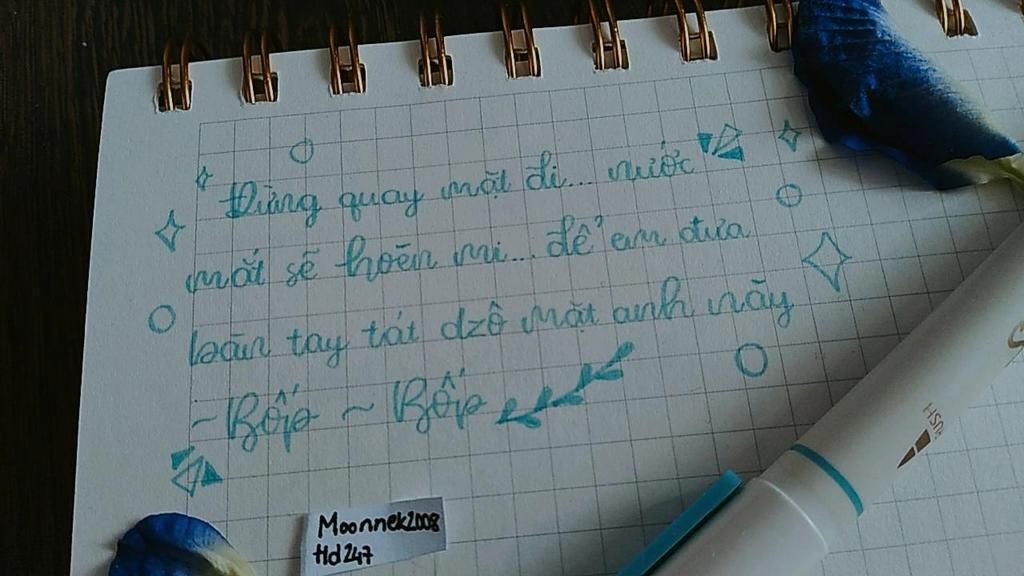 Đừng quay mặt đi... nước
mắt sẽ hoēn mi... để em đưa
bàn tay tát dzô mặt anh nāy
~ Bốp ~ Bốp
Moonnek2008
Hd247